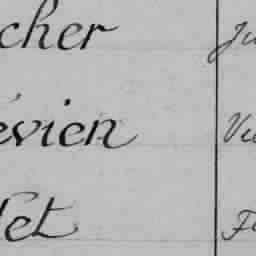 cher Ju
évien Vi
let F